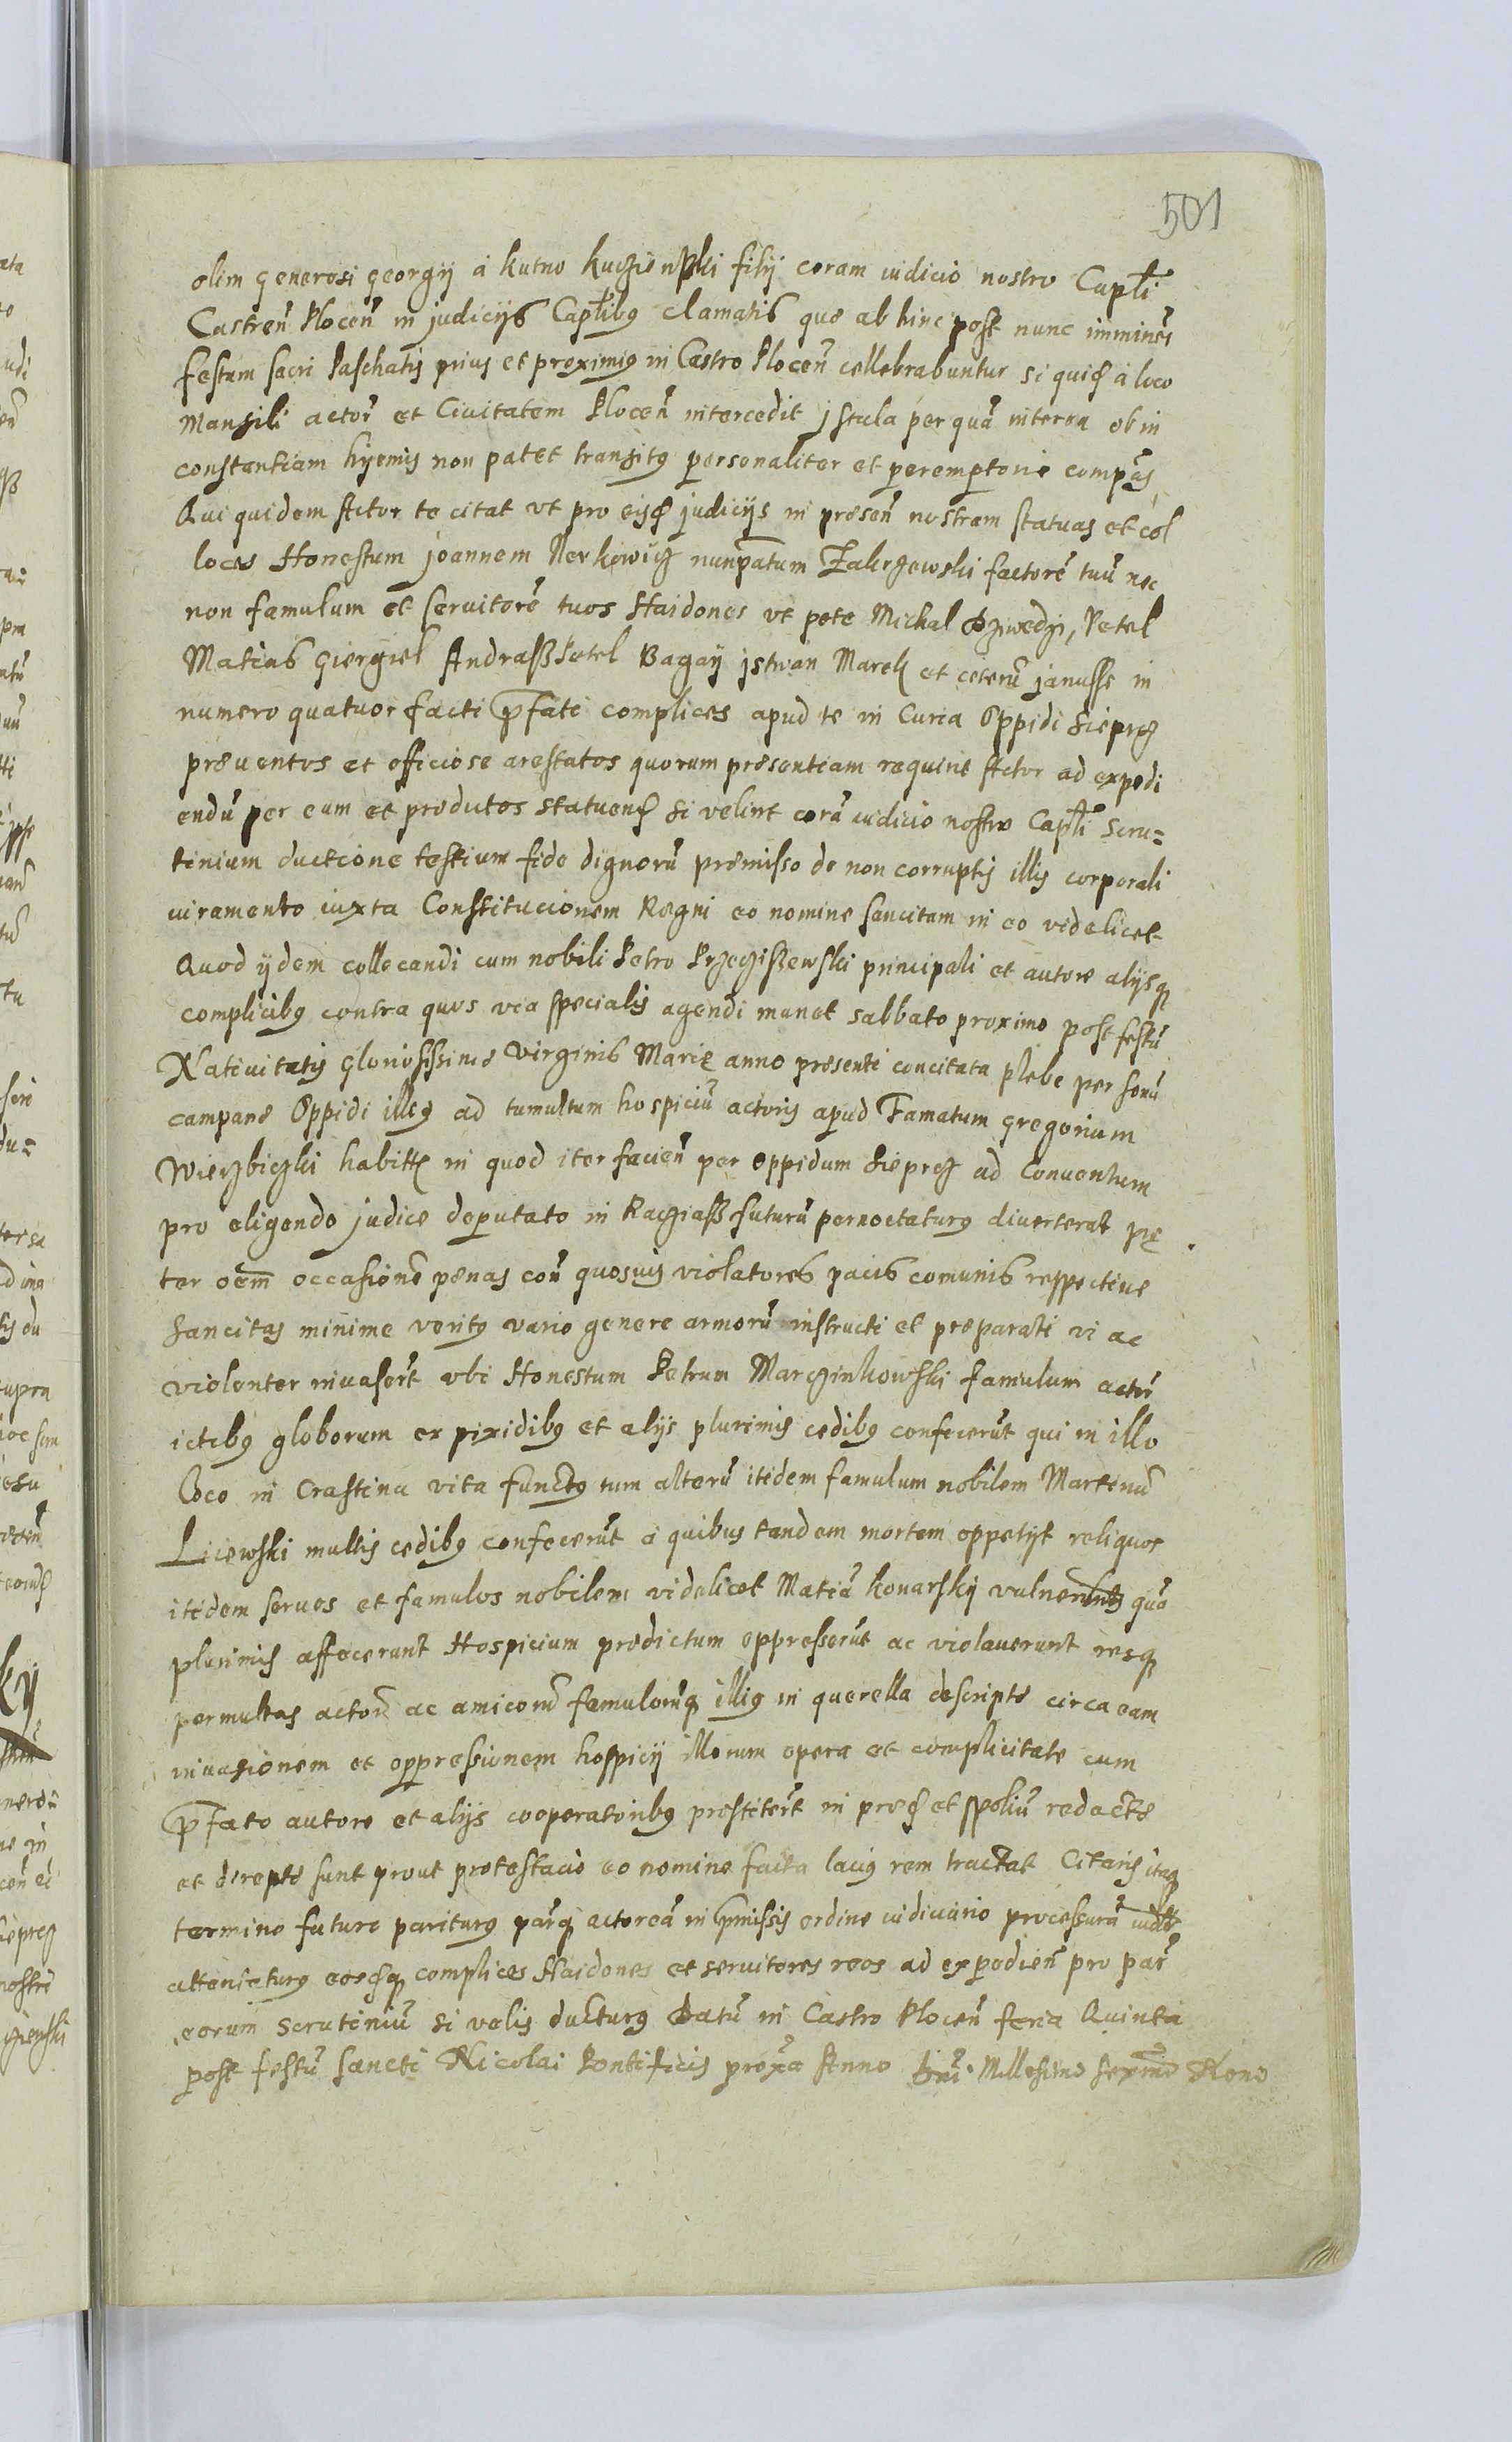 501
olim generosi georgij á kutno kuczienski filij coram iudicio nostro Capłi
CastreñPloceñ in judicijs Capłibꝯ clamatis quæ ab hinc post nunc imminēs
festum sacri Paschatis prius et proximiꝯ in Castro Ploceñ cellebrabuntur si quiđ á loco
Mansili actor̃ et Ciuitatem Ploceñ intercedit jstula per quā interea ob in
constantiam hijemis non patet transitꝯ personaliter et peremptorie compās
Qui quidem Actor te citat vt pro eisđ judicijs in præseñ nostram statuas et col
loces Honestum joannem Perkowicz nunpatum Zakrzewski factorē tuū nec
non famulum et seruitorē tuos Haidones vt pote Michal Dziwedzi, Petel
Matias Giergiel Andraß Petel Bagaij jstwan Marek et ceterū janusse in
numero quatuor facti p̄fati complices apud te in Curia Oppidi Sieprcz
præuentos et officiose arestatos quorum præsentiam requirit Actor ad expedi
endū per eum et produtos statuenđ si velint corā iudicio nostro Capłi scru=
tinium ductione testium fide dignorū præmisso de non corruptis illis corporali
iuramento iuxta Constitucionem Regni eo nomine sancitam in eo videlicet
Quod ijdem collocandi cum nobili Petro Przecziszewski principali et autore alijsqꝫ
complicibꝯ contra quos via specialis agendi manet sabbato proximo post festū
Natiuitatis gloriosissimæ Virginis Mariæ anno præsenti concitata plebe per sonū
campanæ Oppidi illiꝯ ad tumultum hospiciū actoris apud Famatum gregorium
Wierzbiczki habitt in quod iter facieñ per oppidum Sieprcz ad Conuentum
pro eligendo judice deputato in Racziaß futurū pernoctaturꝯ diuerterat pꝛæ
ter oem̄ occasionē pænas coñ quosuis violatores pacis comunis respectiue
sancitas minime veritꝯ vario genere armorū instructi et præparati vi ac
violenter inuasert vbi Honestum Petrum Marczinkowski famulum actor̃
ictibꝯ globorum ex pixidibꝯ et alijs plurimis cedibꝯ confecerūt qui in illo
Loco in Crastino vita functꝯ tum alterū itidem famulum nobilem Martinū
Licewski multis cedibꝯ confecerūt á quibus tandem mortem oppetijt reliquos
itidem seruos et famulos nobilem videlicet Matiā konarskij vulneribꝯ quā
plurimis affecerunt Hospicium prædictum oppresserūt ac violauerunt resqꝫ
permultas actor̃ ac amicorū famulorūqꝫ illiꝯ in querella descriptæ circa eam
inuasionem et oppressionem hospicij illorum opera et complicitate cum
p̄fato autore et alijs cooperatoribꝯ præstitert in præđ et spoliū redactæ
et direptæ sunt prout protestacio eo nomine facta laciꝯ rem tractat Citaris itaqꝫ
termino futuro pariturꝯ parq actoreā in p̄missis ordine iudiciario processurā
attenteturꝯ eosđqꝫ complices Haidones et seruitores reos ad expedieñ pro par̃
eorum scrutiniū si velis ducturꝯ Datū in Castro Ploceñ feria Quinta
post festū sancti Nicolai Pontificis proxa Anno Dnī Millesimo sexmo Nono